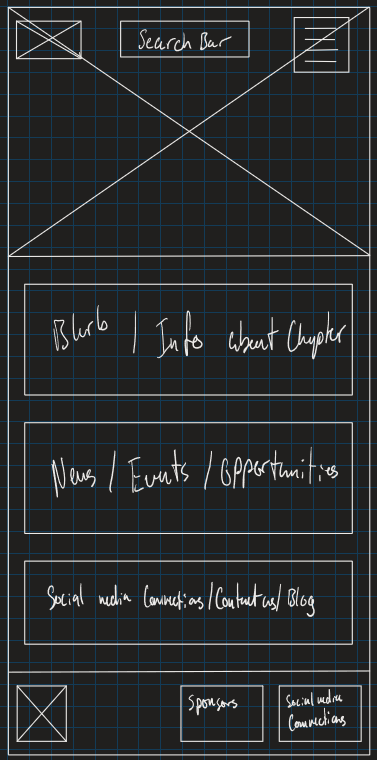 Search Bar
Blurb / Info about Chapter
News / Events / Opportunities
Social media Connections/Contact us/ Blog
Sponsors
Social media
Connections